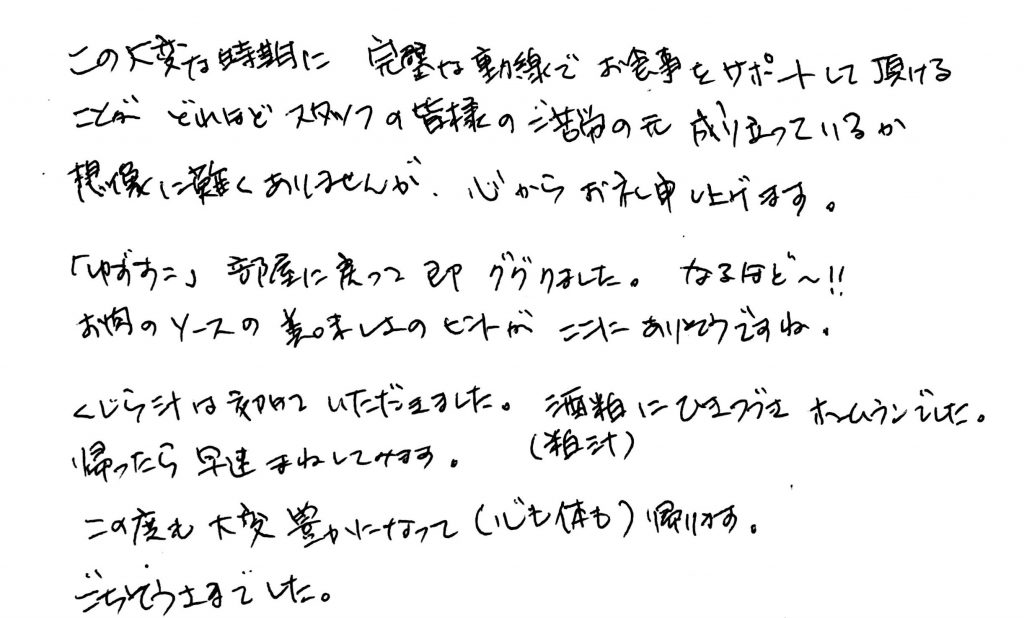 この大変な時期に 完璧な動線で お食事をサポートして頂ける
ことが どれほど スタッフの皆様のご苦労の元 成り立っているか
想像に難くありませんが、心からお礼申し上げます。
「ゆずすこ」 部屋に戻って即 ググりました。 なるほど〜!!
お肉のソースの美味しさのヒントが ここに ありそうですね。
くじら汁は初めて いただきました。 酒粕にひきつづき ホームランでした。
(粕汁)
帰ったら 早速 まねしてみます。
この度も 大変 豊かになって (心も体も) 帰ります。
ごちそうさまでした。